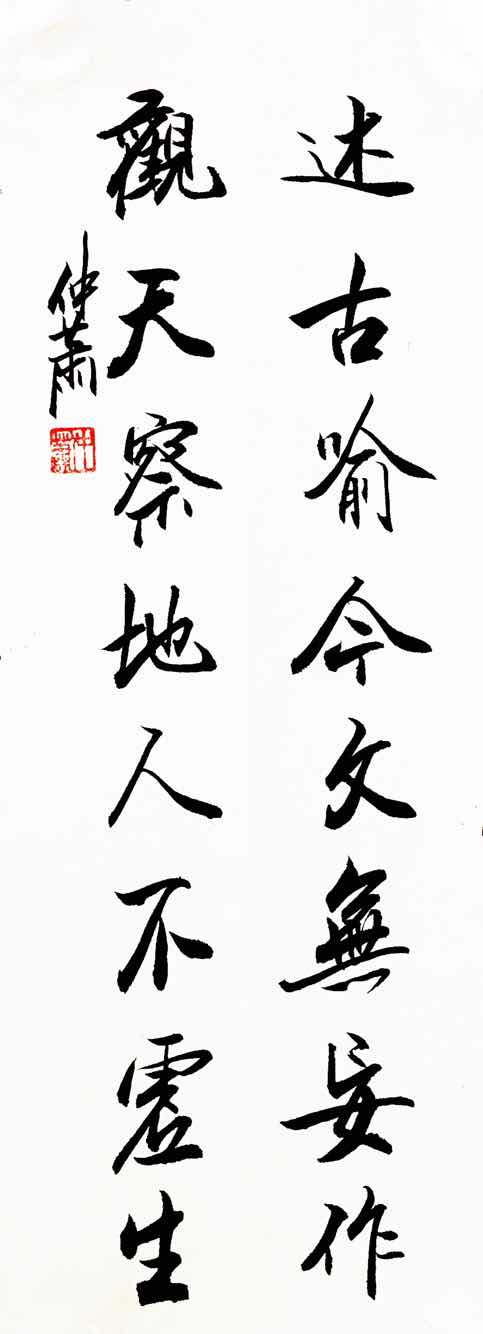 述古喻今文無妄作
觀天察地人不虛生
仲蕭